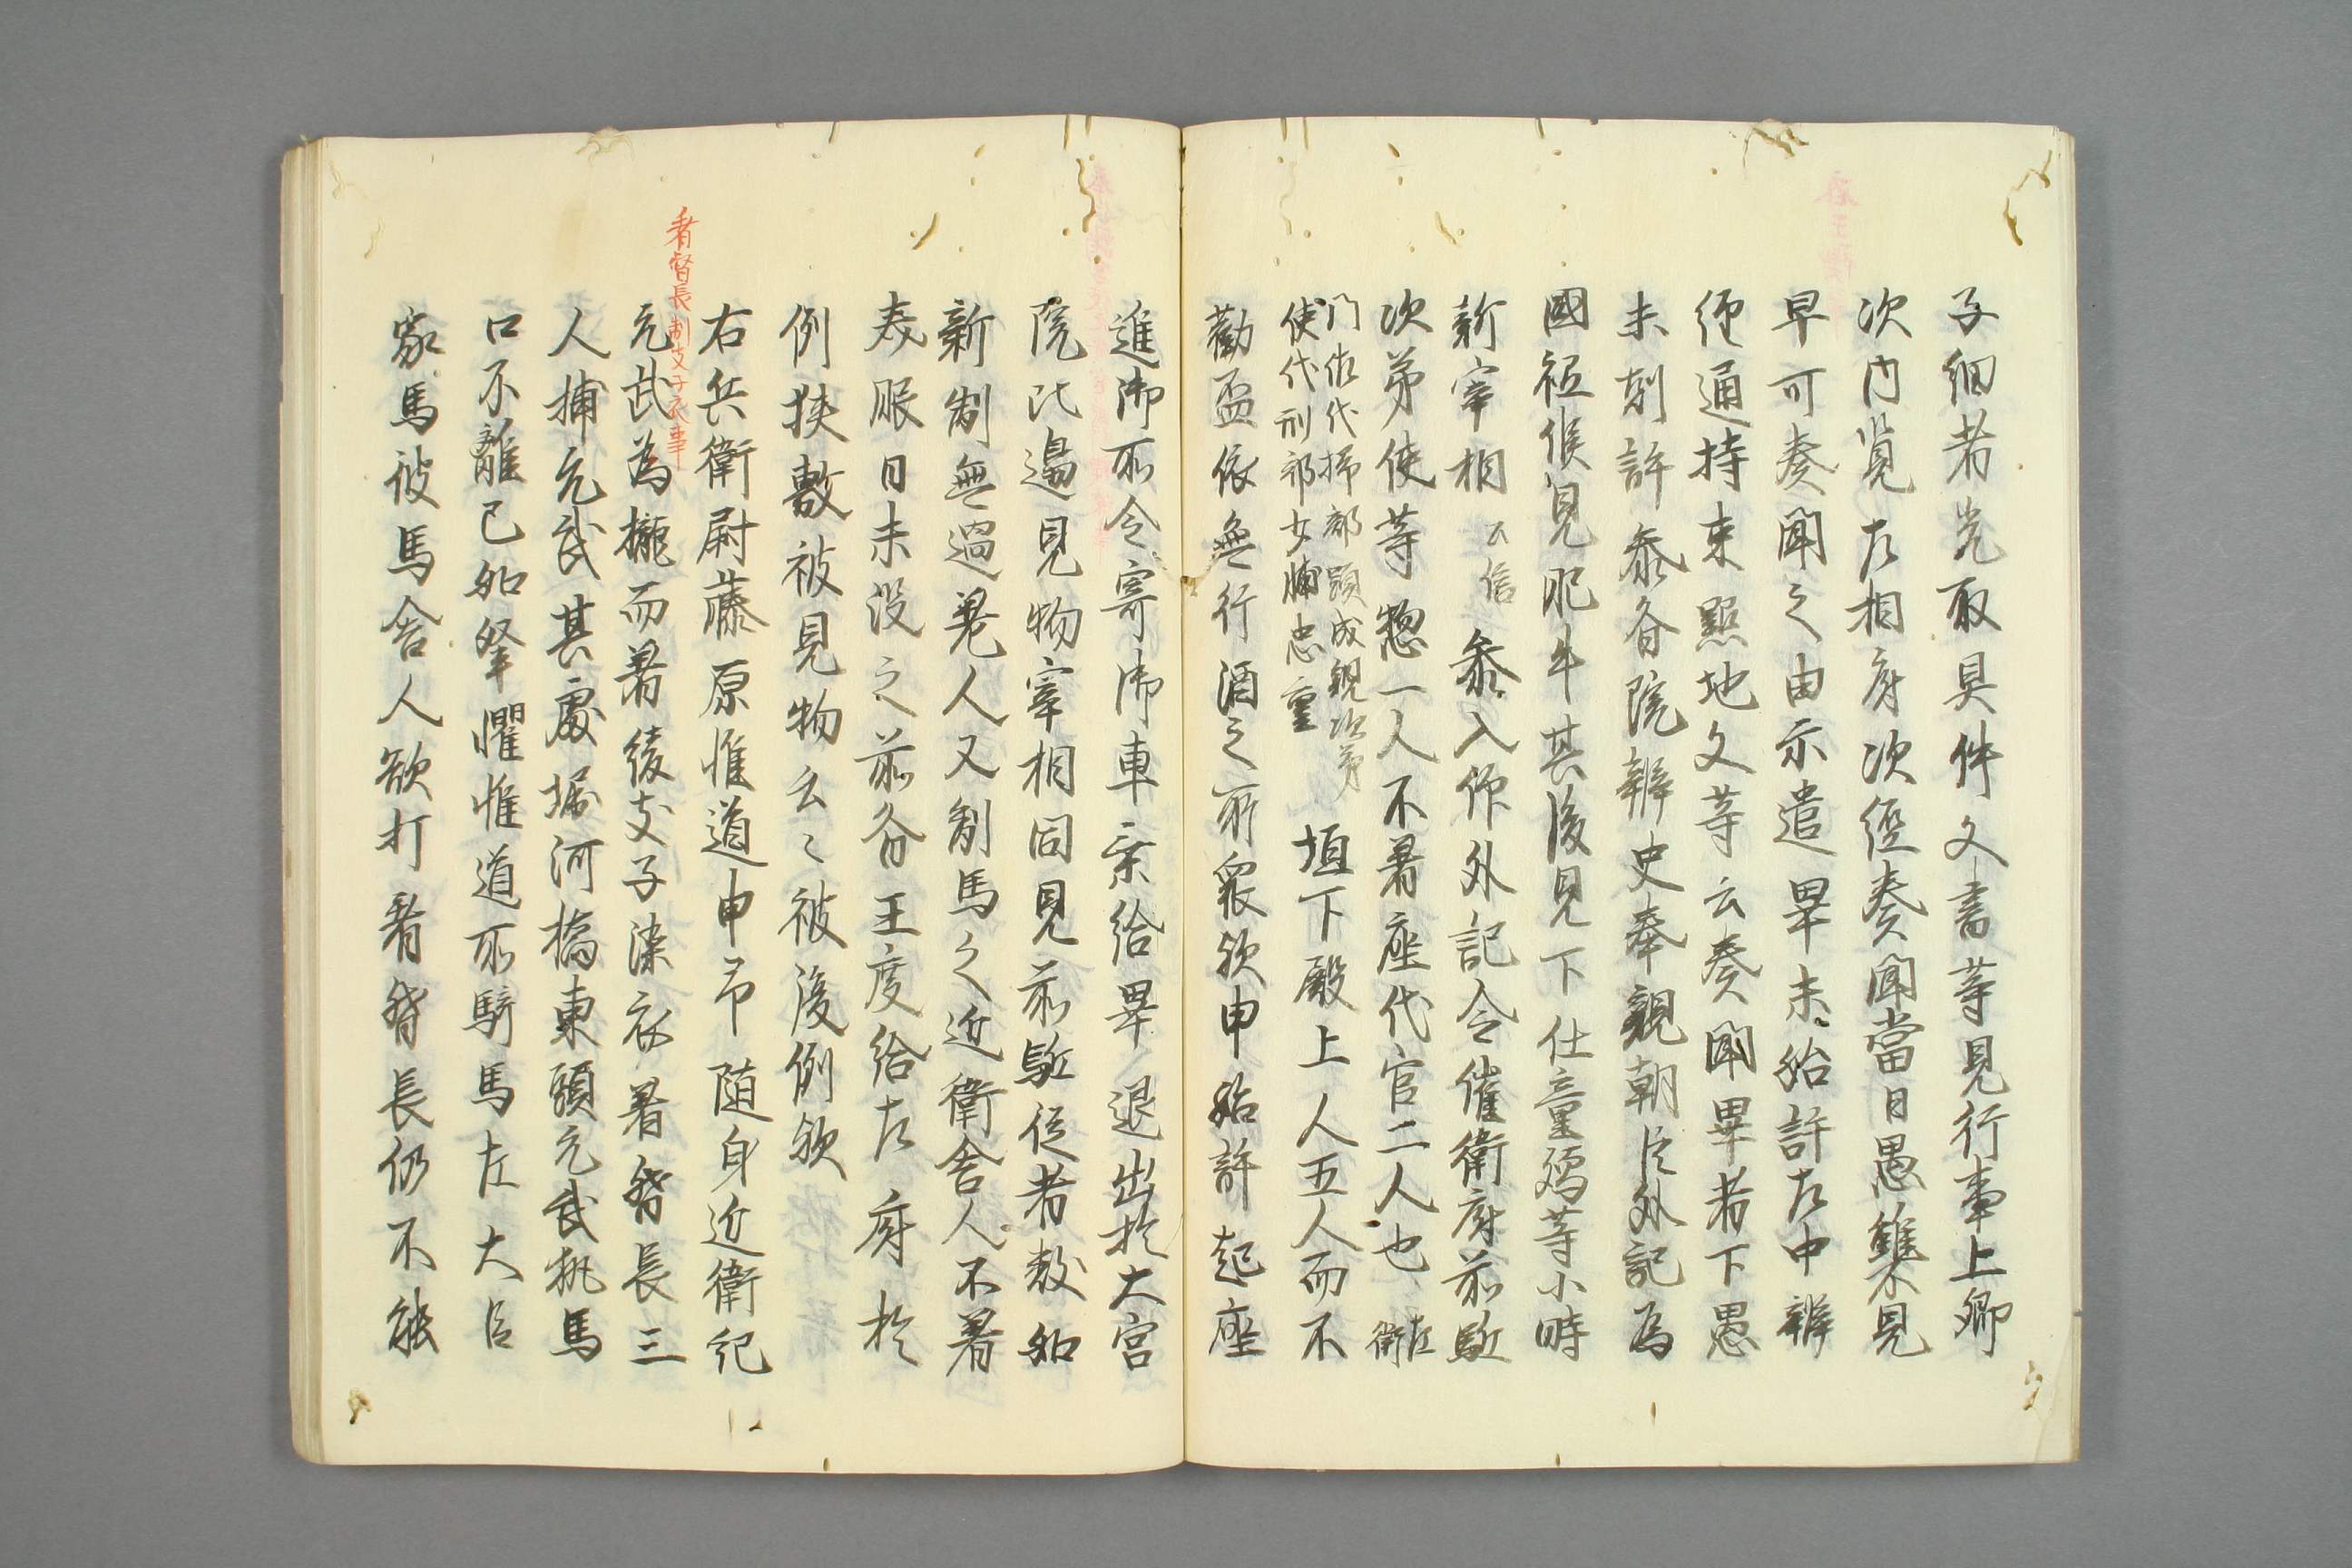 子細者先取具件文書等見行事上卿
次内覧左相府次経奏聞當日愚雖不見
早可奏聞之由示遣畢未始許左中辨
経通持来點地文等云奏聞畢者下愚
未刻許参斎院辨史奉親朝臣外記為
國祗候見肥牛其後見下仕童孺等小時
新宰相公信参入仰外記令催衛府前駈
次第使等惣一人不着座代官二人也左衛
門佐代掃部頭成親次第
使代刑部少輔忠重垣下殿上人五人而不
勧盃依無行酒之所衆欤申始許起座
進御所令寄御車乗給畢退出於大宮
院北邊見物宰相同見前駈従者数如
新制無過差人又制馬之近衛舎人不着
表眼日未没之前斎王度給左府於
例狭敷被見物云々被復例欤
右兵衛尉藤原惟道申弔随身近衛紀
看督長制支子衣事
元武為攏而着綾支子染衣看督長三
人捕元武其處堀河橋東頭元武執馬
口不離已如拏懼惟道所騎馬左大臣
家馬彼馬舎人欲打看督長仍不能